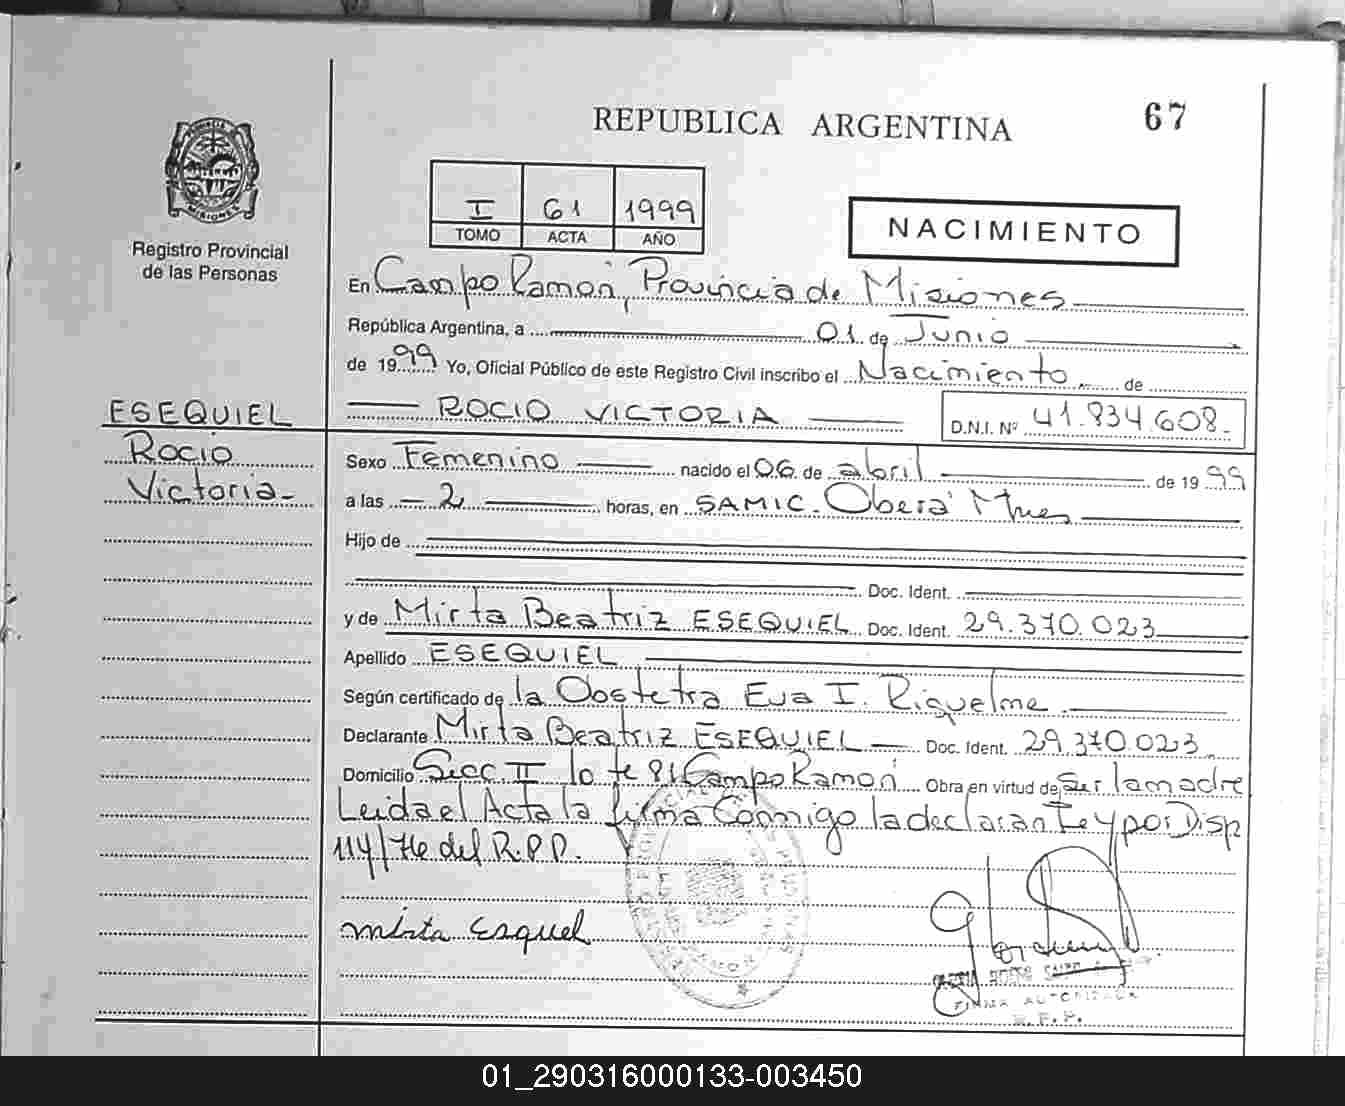 REPUBLICA ARGENTINA
67
PROVINCIA DE
MISIONES
Registro Provincial
de las Personas
I 61 1999
TOMO ACTA AÑO
NACIMIENTO
En Campo Ramón, Provincia de Misiones
República Argentina, a 01 de Junio
de 1999 Yo, Oficial Público de este Registro Civil inscribo el Nacimiento de
ROCIO VICTORIA D.N.I. Nº 41.834.608
ESEQUIEL
Rocio
Victoria
Sexo Femenino nacido el 06 de abril de 1999
a las 2 horas, en SAMIC. Oberá Mnes
Hijo de
Doc. Ident.
y de Mirta Beatriz ESEQUIEL Doc. Ident. 29.370.023
Apellido ESEQUIEL
Según certificado de la Obstetra Eva I. Riquelme
Declarante Mirta Beatriz ESEQUIEL Doc. Ident. 29.370.023
Domicilio Secc II lote 81 Campo Ramón Obra en virtud de Ser la madre
Leida el Acta la firma Conmigo la declarante y por Disp
114/76 del R.P.P.
mirta Esquel
FIRMA AUTORIZADA
R. P. P.
01_290316000133-003450